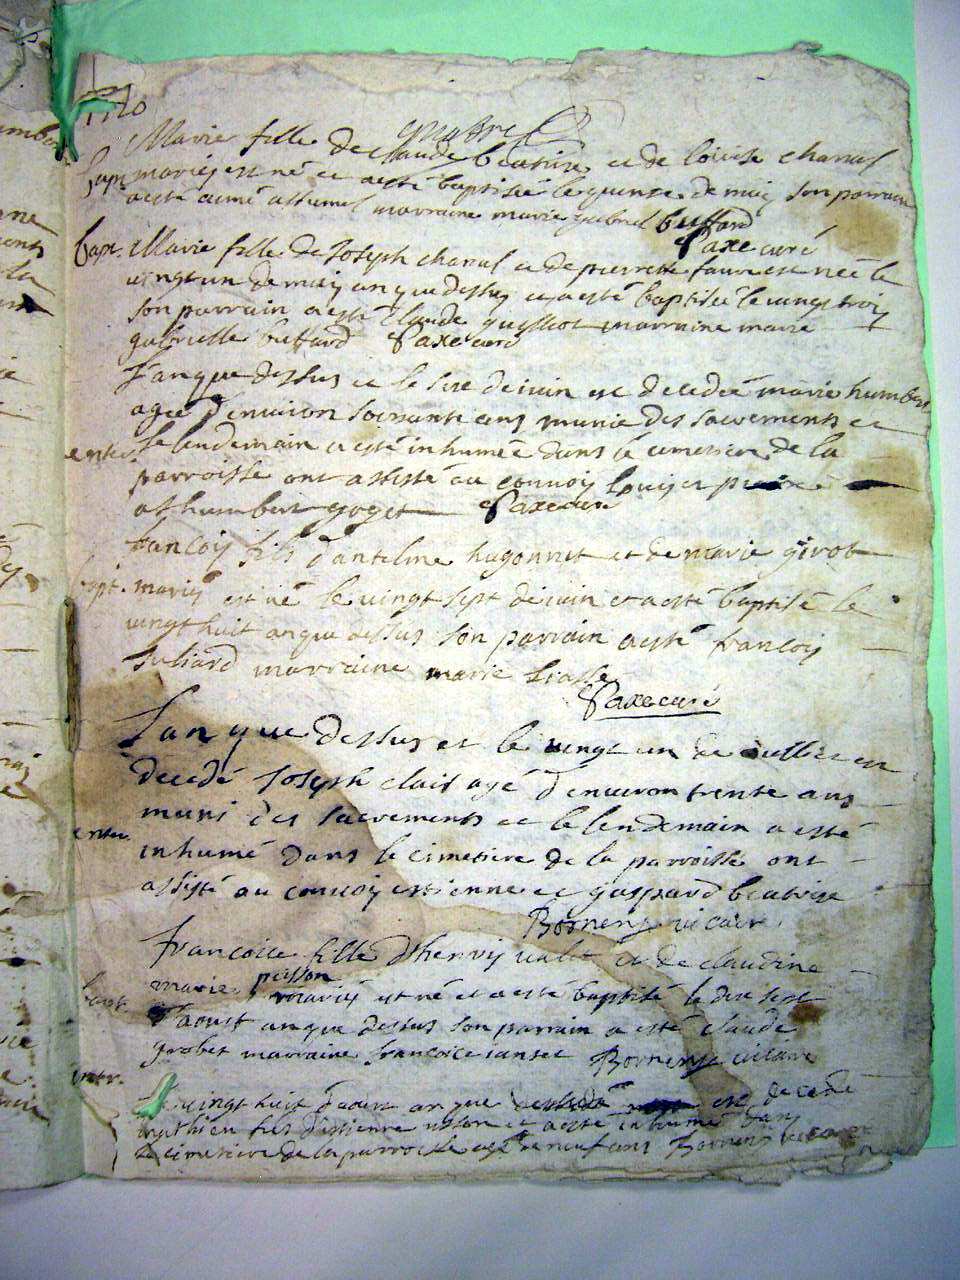 1710
Marie fille de Claude beatrix et de louise chanal
bapt mariés est né et a esté baptisée le quinze de may son parrain
a esté aimé marraine marie gabriel buffard
Paxe curé
bapt. Marie fille de Joseph chanal et de pierrette faure est née le
vingt un de may an que dessus et a esté baptisée le vingt trois
son parrain a esté Claude marraine marie
gabrielle buffard Paxe curé
L'an que dessus et le sise de iuin est decedeé marie humbert
agée d'environ soissante ans munie des sacrements et
enter. le lendemain a esté inhumée dans le cimetiere de la
parroisse ont assisté au convoy louis
et humbert goget Paxe curé
francois fils d'antelme hugonnet et de marie girod
bapt. mariés est né le vingt sept de iuin et a esté baptisé le
vingt huit an que dessus son parrain a esté francois
Juliard marraine marie
Paxe curé
L'an que dessus et le vingt un de iulliet est
decedé Joseph clait agé d'environ trente ans
muni des sacrements et le lendemain a esté
enter. inhumé dans le cimetiere de la parroisse ont
assisté au convoy estienne et gaspard beatrix
Bornens vicaire
francoise fille d'henry et de claudine
marie pusson
bapt mariés est né et a esté baptisé le dix sept
d'aoust an que dessus son parrain a esté claude
grobet marraine francoise Bornens vicaire
enter.
Le vingt huit d'aoust an que dessus est decedé
fils d'estienne et a esté inhumé dans
le cimetiere de la parroisse agé de neuf ans Bornens vicaire